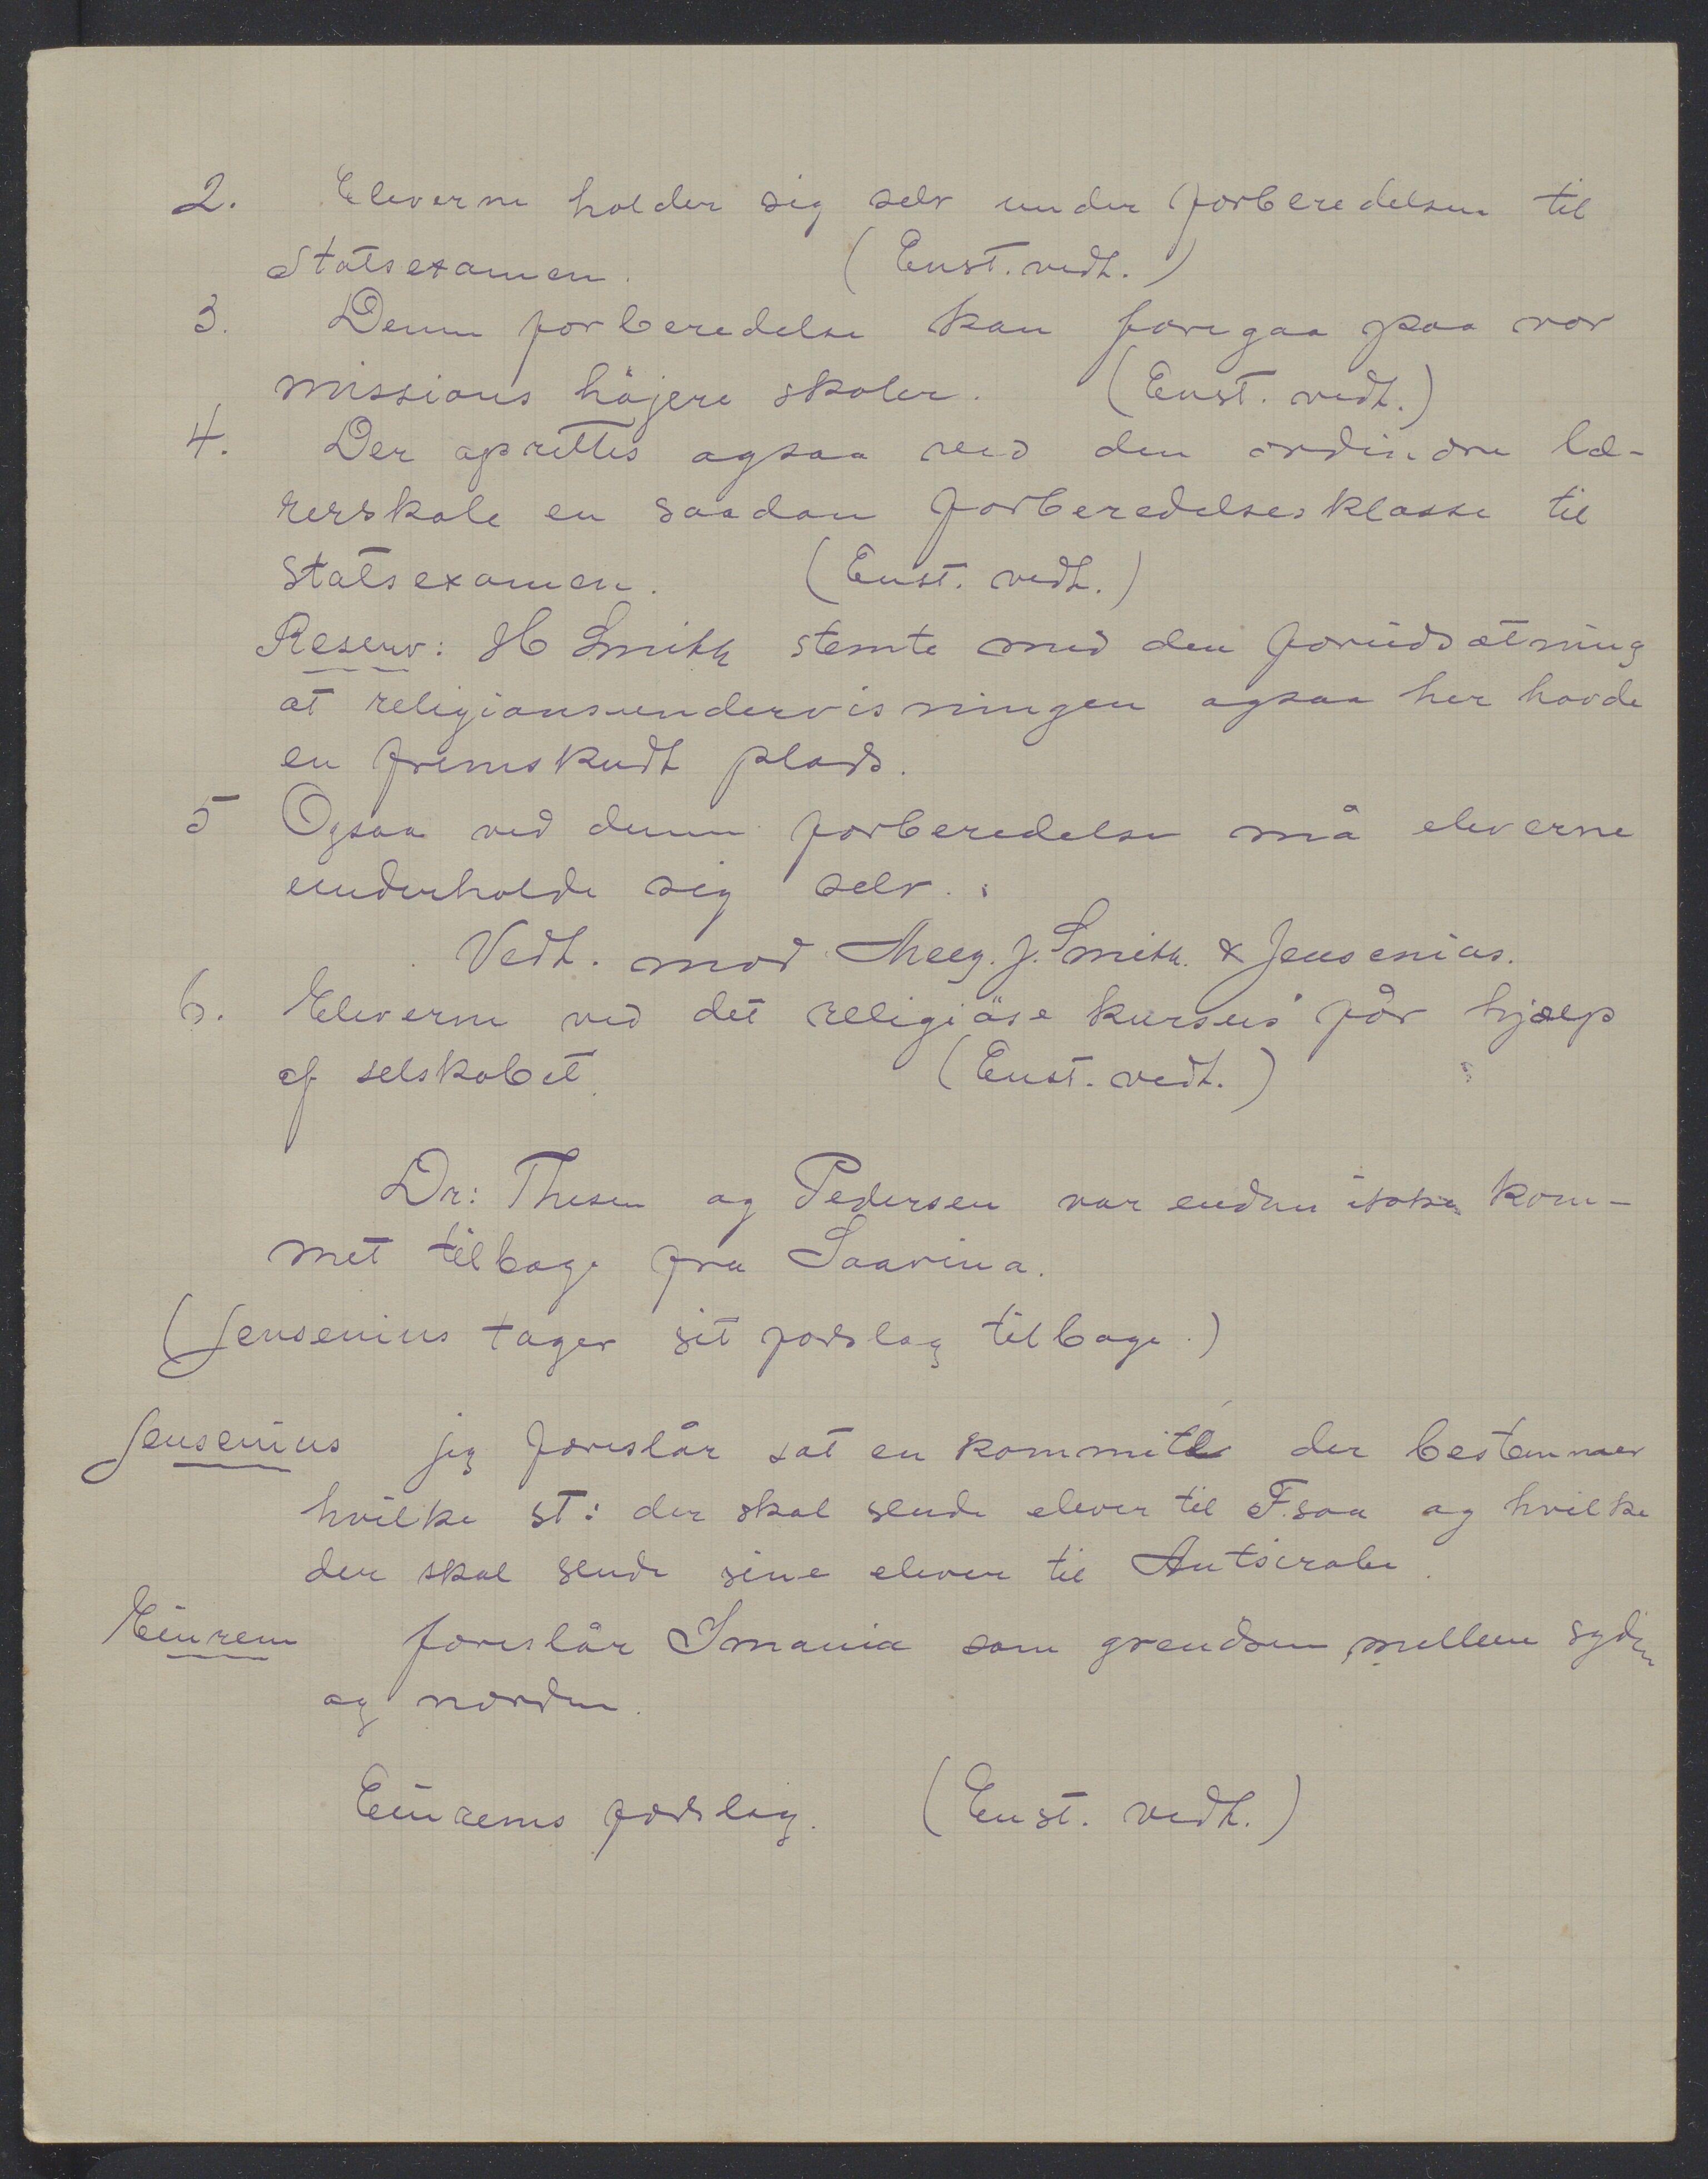 2. Eleverne holder sig selv under forberedelsen til
Statsexamen. (Enst. vedt.)
3. Denne forberedelse kan foregaa paa vor
missions höjere skoler. (Enst. vedt.)
4. Der oprettes ogsaa ved den ordinære læ-
rerskole en saadan forberedelsesklasse til
Statsexamen. (Enst. vedt.)
Reserv: H Smith stemte med den forudsætning
at religionsundervisningen ogsaa her havde
en fremskudt plads.
5 Ogsaa ved denne forberedelse må eleverne
underholde sig selv.
Vedt. mod Meeg. J. Smith. & Jensenius.
6. Eleverne ved det religiöse kursus får hjælp
af selskabet. (Enst. vedt.)
Dr: Thesen og Pedersen var endnu ikke kom-
met tilbage fra Saavina.
(Jensenius tager sit forslag tilbage.)
Jensenius jeg foreslår sat en kommité der bestemmer
hvilke st: der skal sende elever til F.soa og hvilke
der skal sende sine elever til Antsirabe.
Einrem foreslår Imania som grendsen mellem syden
og norden.
Einrems forslag. (Enst. vedt.)